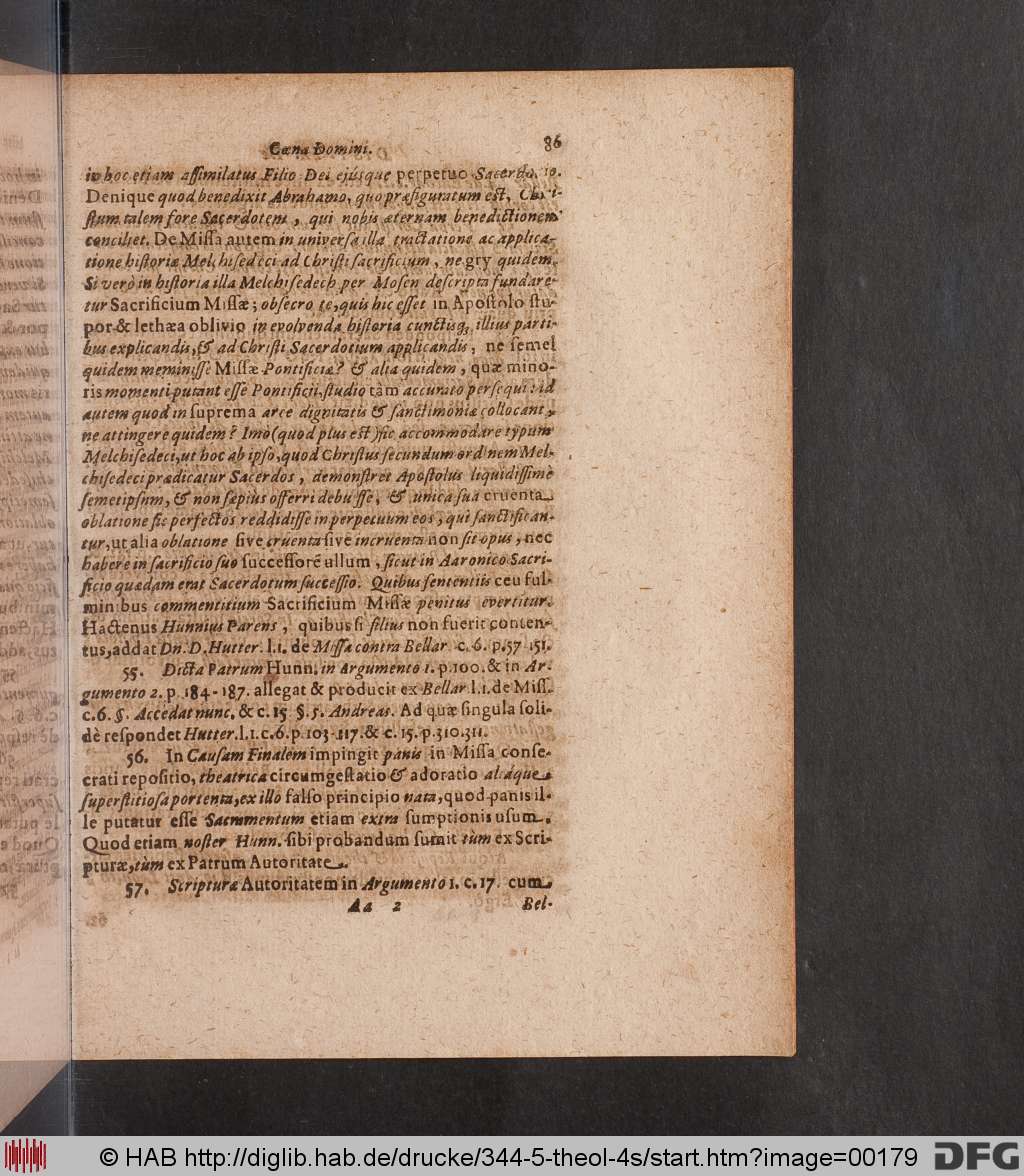 Cœna Domini. 86
in hoc etiam aſſimilatus Filio Dei ejúsque perpetuo Sacerdo. 10.
Denique quod benedixit Abrahamo, quo præfiguratum eſt, Chri-
ſtum talem fore Sacerdotem, qui nobis æternam benedictionem
conciliet. De Miſſa autem in univerſa illa tractatione ac applica-
tione hiſtoriæ Melchiſedeci ad Chriſti ſacrificium, ne gry quidem.
Si verò in hiſtoria illa Melchiſedech per Moſen deſcripta fundare-
tur Sacrificium Miſſæ; obſecro te, quis hic eſſet in Apoſtolo ſtu-
por & lethæa oblivio in evolvenda hiſtoria cunctisq; illius parti-
bus explicandis, & ad Chriſti Sacerdotium applicandis, ne ſemel
quidem meminiſſe Miſſæ Pontificiæ? & alia quidem, quæ mino-
ris momenti putant eſſe Pontificii, ſtudio tàm accurato perſequi: id
autem quod in ſuprema arce dignitatis & ſanctimoniæ collocant,
ne attingere quidem? Imò (quod plus eſt) ſic accommodare typum
Melchiſedeci, ut hoc ab ipſo, quod Chriſtus ſecundum ordinem Mel-
chiſedeci prædicatur Sacerdos, demonſtret Apoſtolus liquidiſſimè
ſemetipſum, & non ſæpiùs offerri debuiſſe, & unica ſuâ cruenta
oblatione ſic perfectos reddidiſſe in perpetuum eos, qui ſanctifican-
tur, ut alia oblatione ſive cruenta ſive incruenta non ſit opus, nec
habere in ſacrificio ſuo ſucceſſorē ullum, ſicut in Aaronico Sacri-
ficio quædam erat Sacerdotum ſucceſſio. Quibus ſententiis ceu ful-
minibus commentitium Sacrificium Miſſæ penitus evertitur.
Hactenus Hunnius Parens, quibus ſi filius non fuerit conten-
tus, addat Dn. D. Hutter. l.1. de Miſſa contra Bellar. c. 6. p. 57 151.
55. Dicta Patrum Hunn. in Argumento 1. p. 100. & in Ar-
gumento 2. p. 184-187. allegat & producit ex Bellar l.1. de Miſſ.
c. 6. §. Accedat nunc. & c. 15 §. 5. Andreas. Ad quæ ſingula ſoli-
dè reſpondet Hutter. l.1. c. 6. p. 103-117. & c. 15. p. 310. 311.
56. In Cauſam Finalem impingit panis in Miſſa conſe-
crati repoſitio, theatrica circumgeſtatio & adoratio aliáque
ſuperſtitioſa portenta, ex illo falſo principio nata, quod panis il-
le putatur eſſe Sacramentum etiam extra ſumptionis uſum.
Quod etiam noſter Hunn. ſibi probandum ſumit tùm ex Scri-
pturæ, tùm ex Patrum Autoritate.
57. Scripturæ Autoritatem in Argumento 1. c. 17. cum
Aa 2 Bel-
© HAB http://diglib.hab.de/drucke/344-5-theol-4s/start.htm?image=00179 DFG